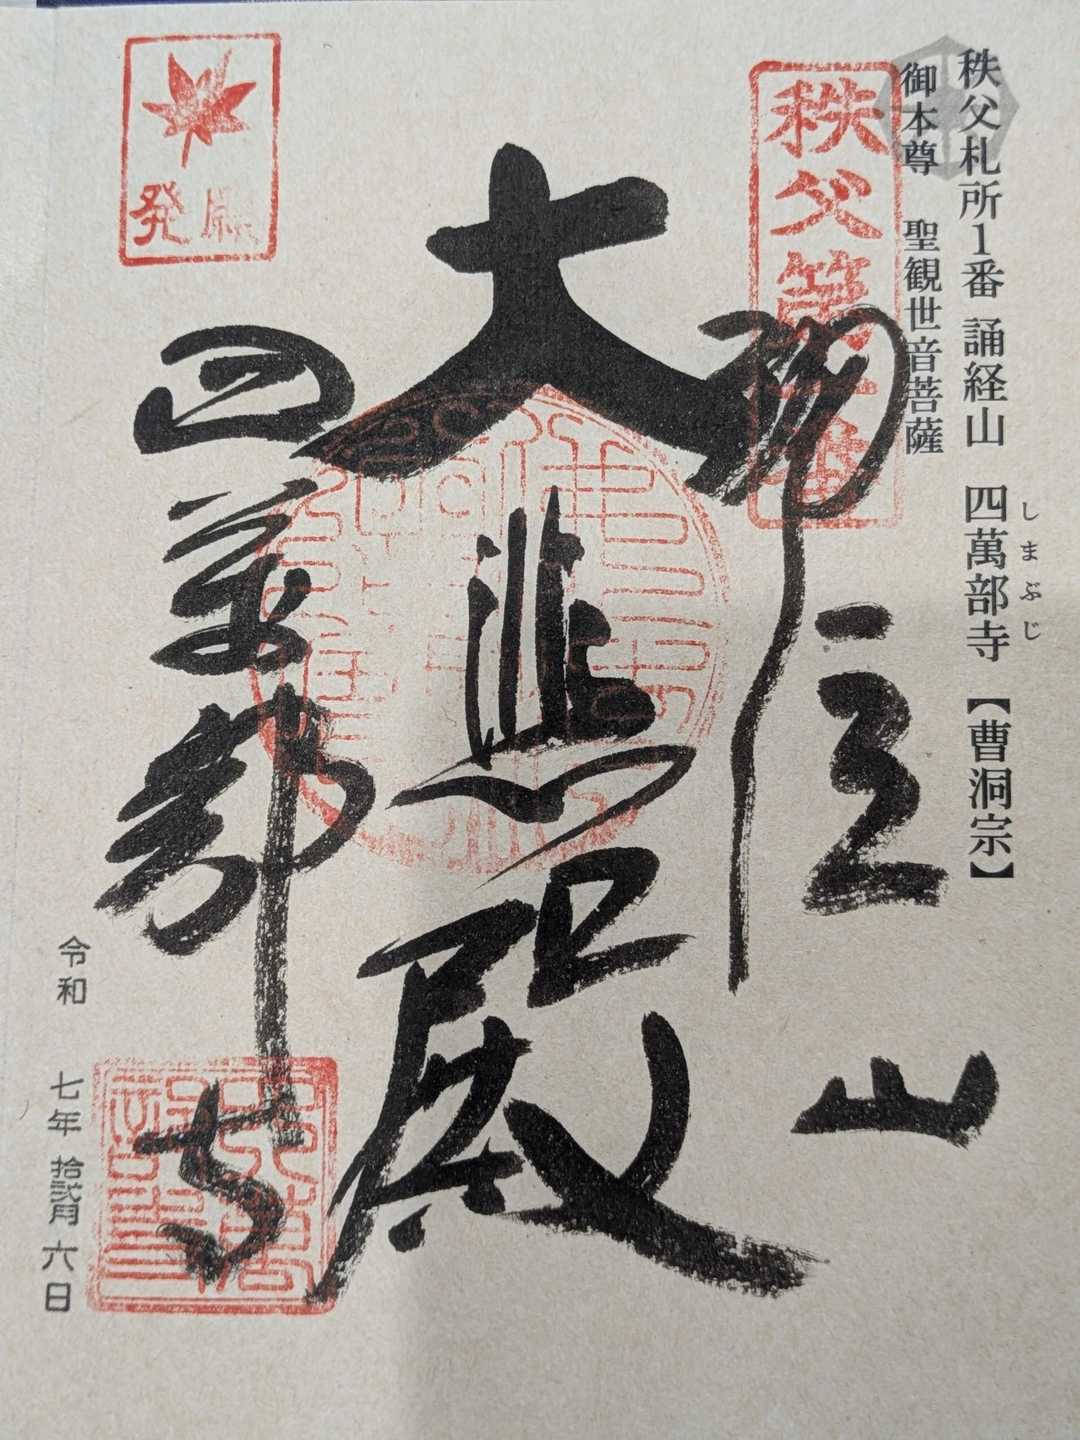 秩父札所1番 誦経山 四萬部寺 【曹洞宗】
しまぶじ
御本尊 聖観世音菩薩
秩父第一番
山
大悲殿
四萬部寺
発願
令和 七年 拾弐月 六日